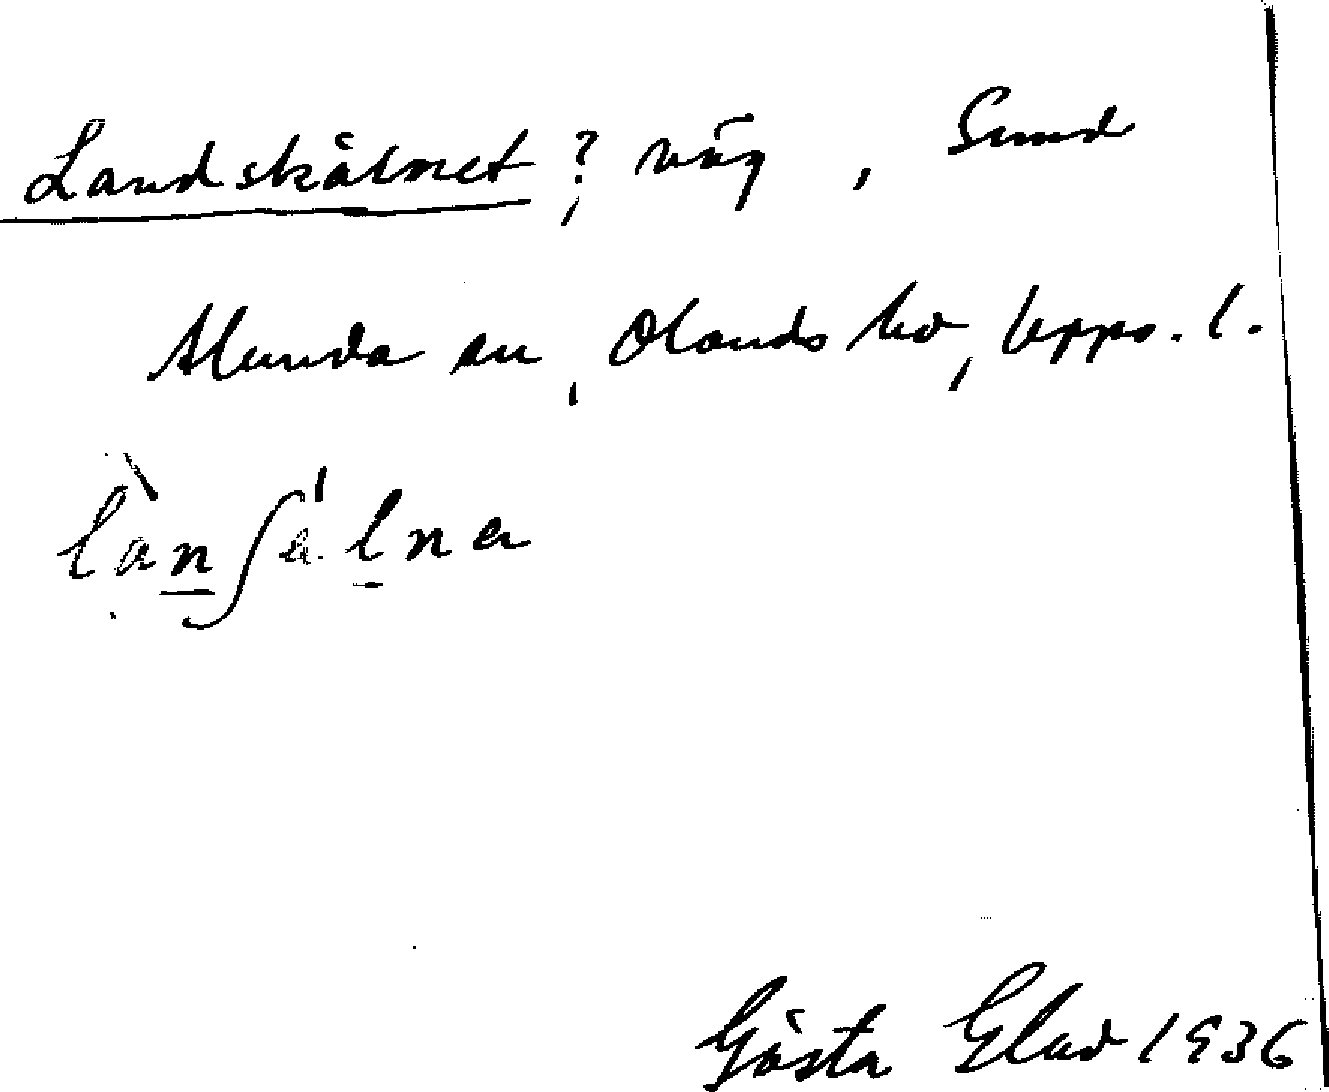 Landskälnet?, väg, Sund
Alunda sn, Olands hd, Upps. l.
lànʃälna
Gösta Elad 1936